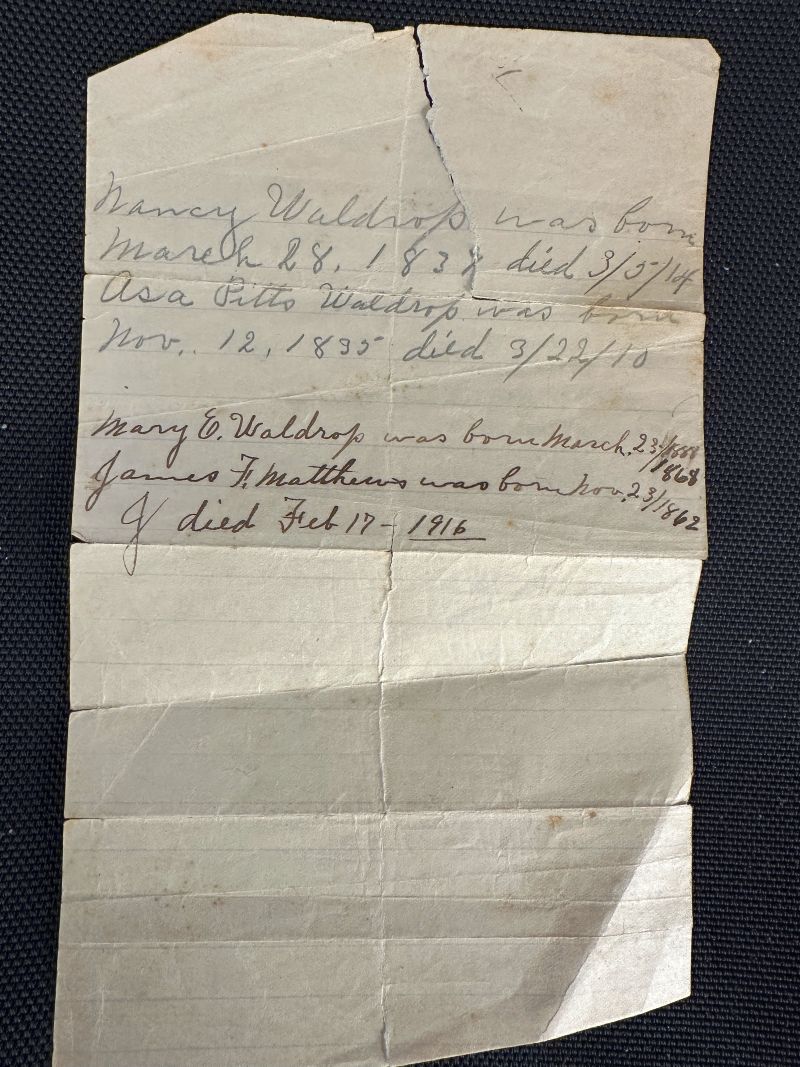 Nancy Waldrop was born
March 28, 1838 died 3/5/14
Asa Pitts Waldrop was born
Nov. 12, 1835 died 3/22/10
Mary E. Waldrop was born March, 23/1868
1868
James F. Matthews was born Nov, 23/1862
died Feb 17 - 1916